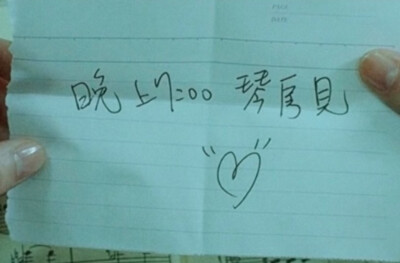 晚上7:00 琴房見